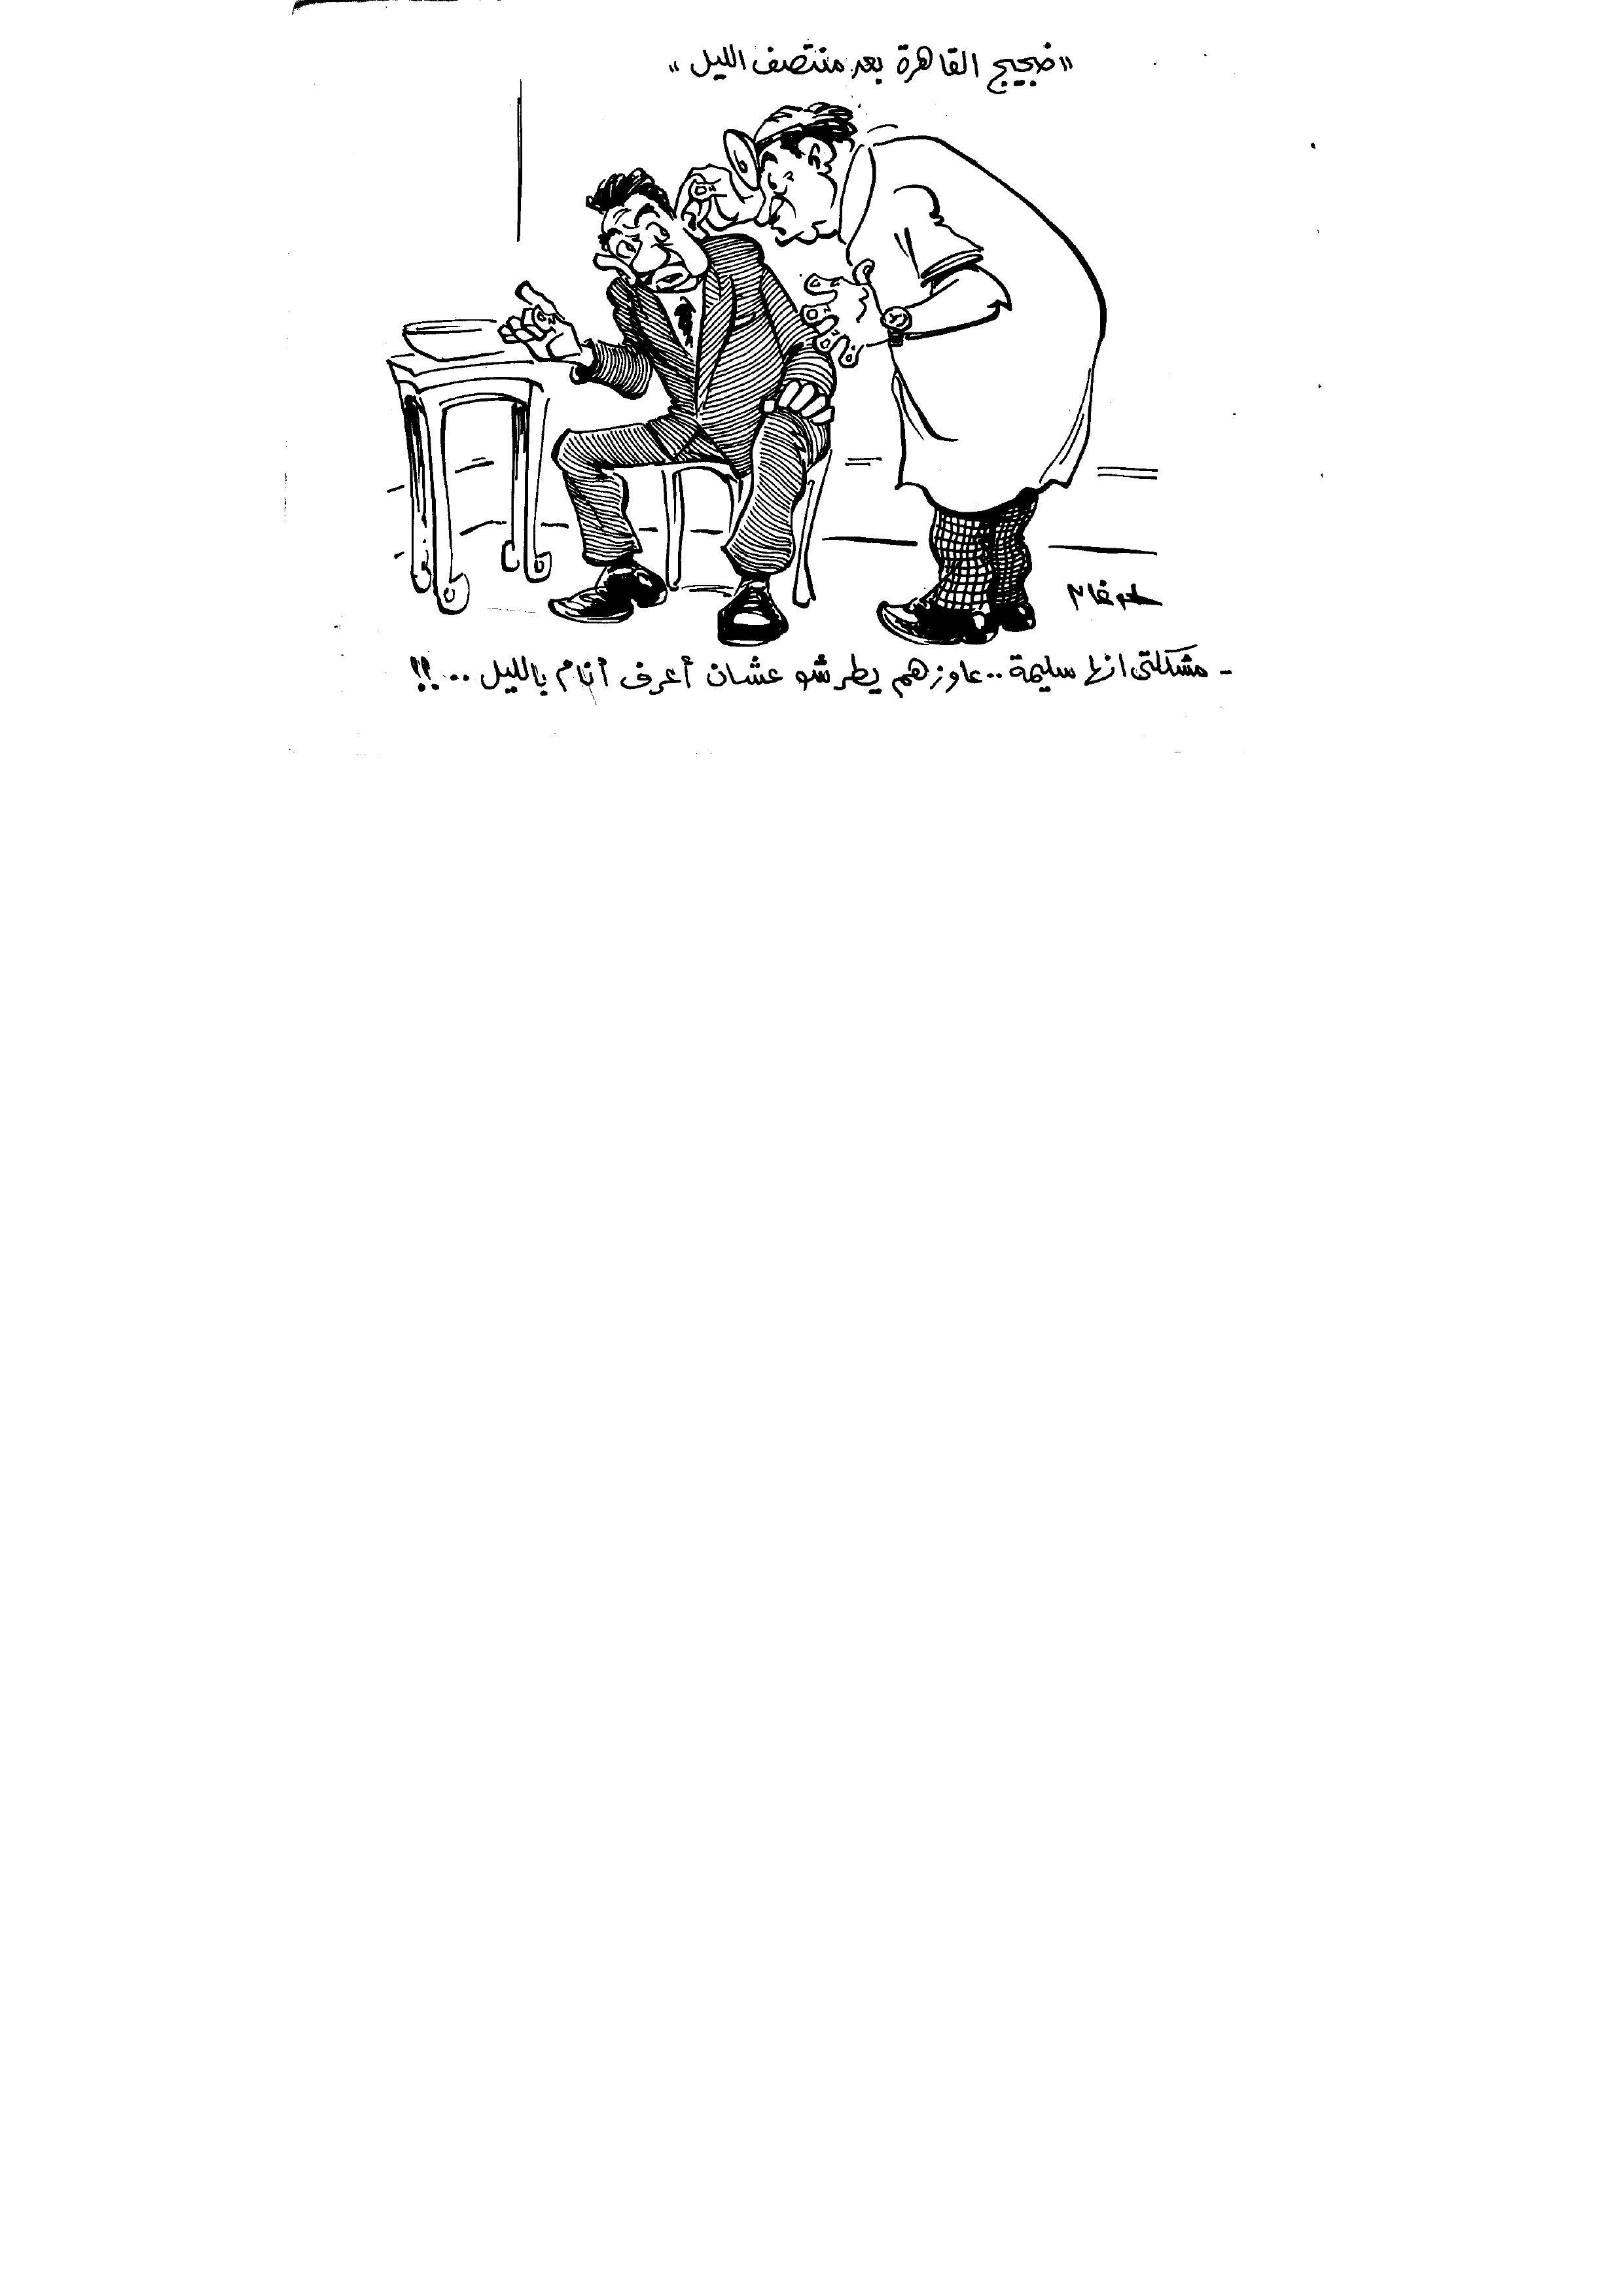 "ضجيج القاهرة بعد منتصف الليل"
- مشكلتى انها سليمة .. عاوزهم يطرشو عشان أعرف أنام بالليل .. !!